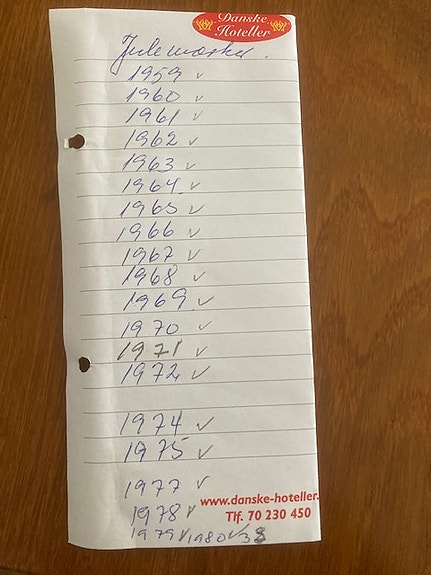 Danske
Hoteller
Julemærker.
1959 ✓
1960 ✓
1961 ✓
1962 ✓
1963 ✓
1964 ✓
1965 ✓
1966 ✓
1967 ✓
1968 ✓
1969 ✓
1970 ✓
1971 ✓
1972 ✓
1974 ✓
1975 ✓
1977 ✓
www.danske-hoteller.
1978 ✓
Tlf. 70 230 450
1979 ✓ 1980 ✓